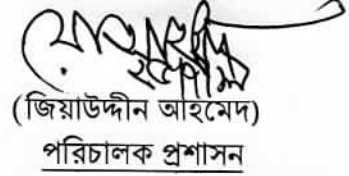 (জিয়াউদ্দীন আহমেদ)
পরিচালক প্রশাসন